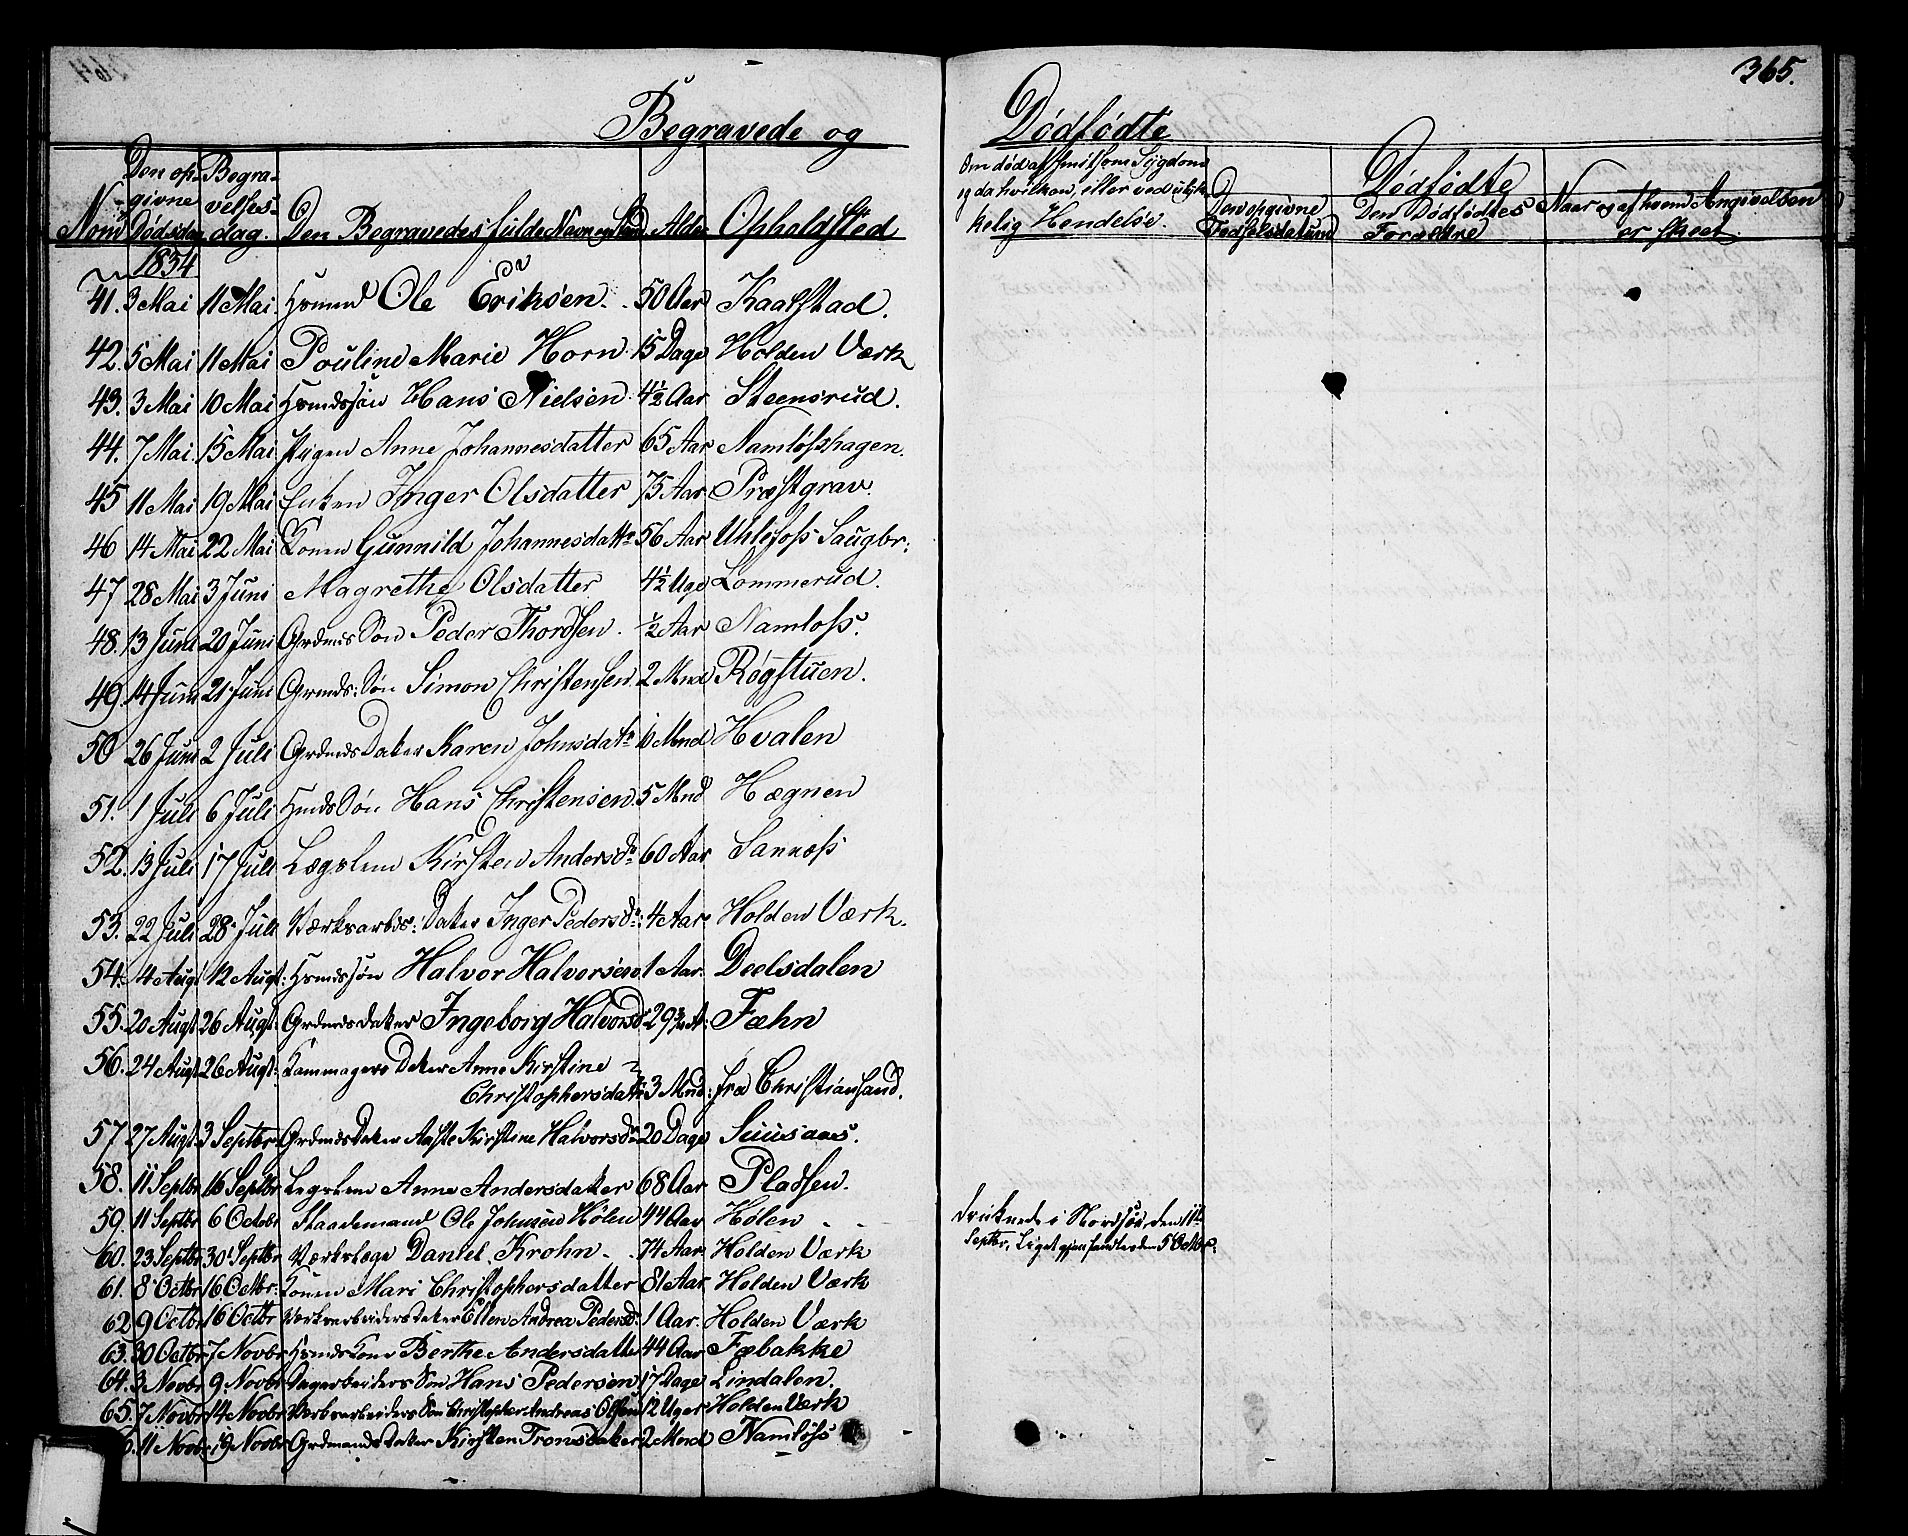 365.
Begravede og Dødfødte
Den opgivne Dødsdag
Begravelsesdag.
Den Begravedes fulde Navn og Stand
Alder
Opholdsted
Om død af smitsom Sygdom
og da hvilken, eller ved ulyk-
kelig Hendelse.
Den opgivne Fødselsdatum
Dødfødte
Den Dødfødtes Forældre
Naar og af hvem Angivelsen
er skeet.
1834
41. 3 Mai 11 Mai Hsmnd Ole Eriksen. 50 Aar Kaasstad.
42. 5 Mai 11 Mai Pouline Marie Horn. 15 Dage Holden Værk
43. 3 Mai 10 Mai Hsmdssøn Hans Nielsen 4½ Aar Steensrud.
44. 7 Mai 15 Mai Pigen Anne Johannesdatter 65 Aar Namløshagen.
45 11 Mai 19 Mai Enken Inger Olsdatter 75 Aar Præstgrav.
46 14 Mai 22 Mai Konen Gunnild Johannesdattr 56 Aar Uhlefoss Saugbr:
47 28 Mai 3 Juni Magrethe Olsdatter 4½ Uge Lommerud.
48. 13 Juni 20 Juni Grdmds Søn Peder Thordsen. ½ Aar Namløss.
49. 14 Juni 21 Juni Grmds: Søn Simon Christensen. 2 Mnd Røgstuen.
50 26 Juni 2 Juli Grdmds Datter Karen Johnsdatr Mnd Hvalen
51. 1 Juli 6 Juli Hmds Søn Hans Christensen. 5 Mnd Hægnen
52. 13 Juli 17 Juli Lægslem Kirsten Andersdr 60 Aar Sannæss
53. 22 Juli 28 Juli Værksarbdr: Datter Inger Pedersdr: 4 Aar Holden Værk.
54. 4 Augt 12 Augt: Hsmdssøn Halvor Halvorsen 1 Aar. Deelsdalen
55. 20 Augt 26 Augt. Grdmdsdatter Ingeborg Halvorsd 29¾ A: Fæhn
56. 24 Augt 26 Augt. Kammagers Datter Anne Kirstine
Christophersdatr 3 Mnd: fra Christiansand.
57 27 Augt 3 Septbr Grdmds Datter Aaste Kirstine Halvorsdr 20 Dage Suusaas.
58. 11 Septbr 16 Septbr Legslem Anne Andersdatter 68 Aar Pladsen.
59. 11 Septbr 6 Octobr Skaademand Ole Johnsen Hølen 44 Aar Hølen druknede i Nordsøe den 11te
Septbr, Liget gjenfandtes den 5 Octbr.
60. 23 Septbr 30 Septbr Værkslæge Daniel Krohn 74 Aar. Holden Værk
61. 8 Octbr 16 Octbr: Konen Mari Christophersdatter 81 Aar Holden Værk
62 9 Octbr 16 Octbr Værksarbeiders datter Ellen Andrea Pedersd: 1 Aar. Holden Værk
63. 30 Octbr 7 Novbr Hsmds Kone Berthe Andersdatter 44 Aar Fæbakke
64. 3 Novbr 9. Novbr Dagarbeiders Søn Hans Pedersen 17 Dage Lindalen.
65. 7 Novbr 14 Novbr Værksarbeiders Søn Christopher Andreas Olsen 12 Uger Holden Værk
11 Novbr 19 Novbr Grdmands datter Kirsten Tronsdatter 2 Mnd Namløss